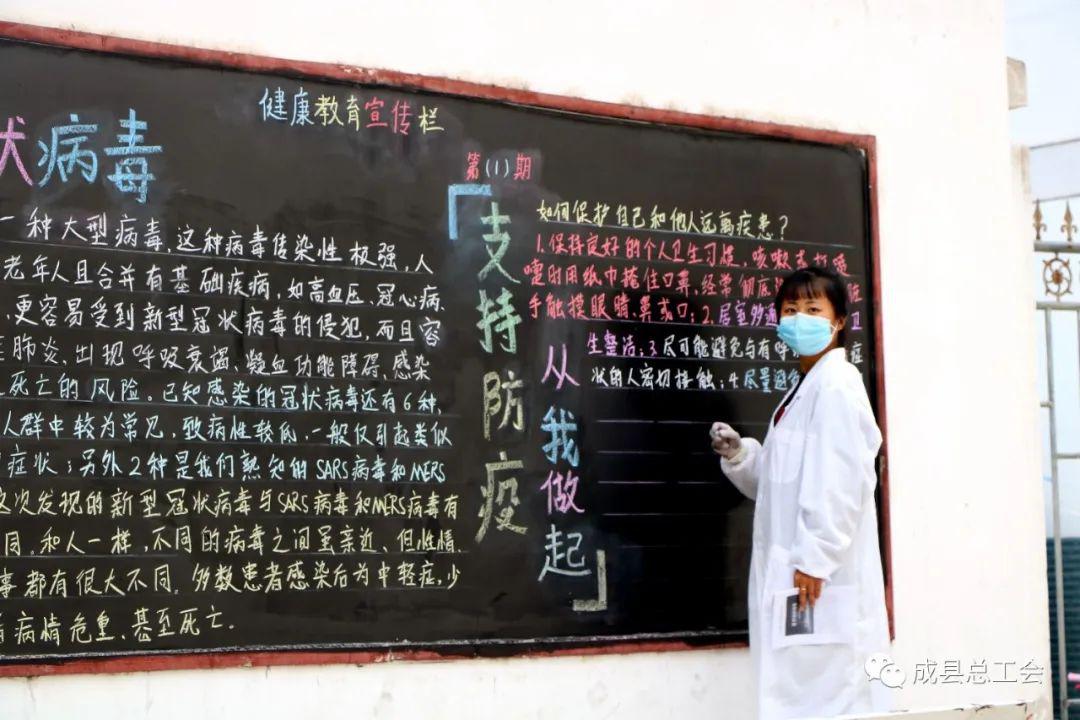 健康教育宣传栏
状病毒
第(1)期
「支持防疫
从我做起」
一种大型病毒,这种病毒传染性极强,人
老年人且合并有基础疾病,如高血压、冠心病、
更容易受到新型冠状病毒的侵犯,而且容
肺炎、出现呼吸衰竭、凝血功能障碍、感染
死亡的风险。已知感染的冠状病毒还有6种,
人群中较为常见,致病性较低,一般仅引起类似
症状;另外2种是我们熟知的SARS病毒和MERS
这次发现的新型冠状病毒与SARS病毒和MERS病毒有
同。和人一样,不同的病毒之间虽亲近、但性情、
事都有很大不同。多数患者感染后为中轻症,少
病情危重、甚至死亡.
如何保护自己和他人远离疾患?
1.保持良好的个人卫生习惯,咳嗽或打喷
嚏时用纸巾掩住口鼻,经常彻底
手触摸眼睛、鼻或口;2.居室多通 卫
生整洁;3.尽可能避免与有呼 症
状的人密切接触;4.尽量避免
成县总工会